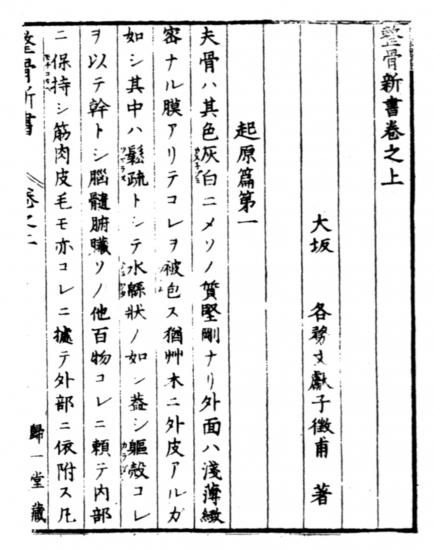 整骨新書卷之上
大坂 各務文獻子徵甫 著
起原篇第一
夫骨ハ其色灰白ニメソノ質堅剛ナリ外面ハ淺薄緻
密ナル膜アリテコレヲ被包ス猶艸木ニ外皮アルカ
如シ其中ハ鬆疏トシテ水緜狀ノ如シ葢シ軀殻コレ
ヲ以テ幹トシ腦髓腑臟ソノ他百物コレニ頼テ內部
ニ保持シ筋肉皮毛モ亦コレニ據テ外部ニ依附ス凡
整骨新書
卷之上
歸一堂藏